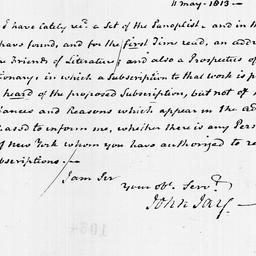 11 May. 1813 —
I have lately recd. a Set of the Panoplist – and in th
have found, and for the first Time read, an addre
he Friends of Literature; and also a Prospectus of
tionary, in which a Subscription to that work is p
heard of the proposed Subscription, but not of
ances and Reasons which appear in the ad
eased to inform me, whether there is any Pers
of New York whom you have authorized to re
bscriptions. —
I am Sir
your obt. Servt.
John Jay —